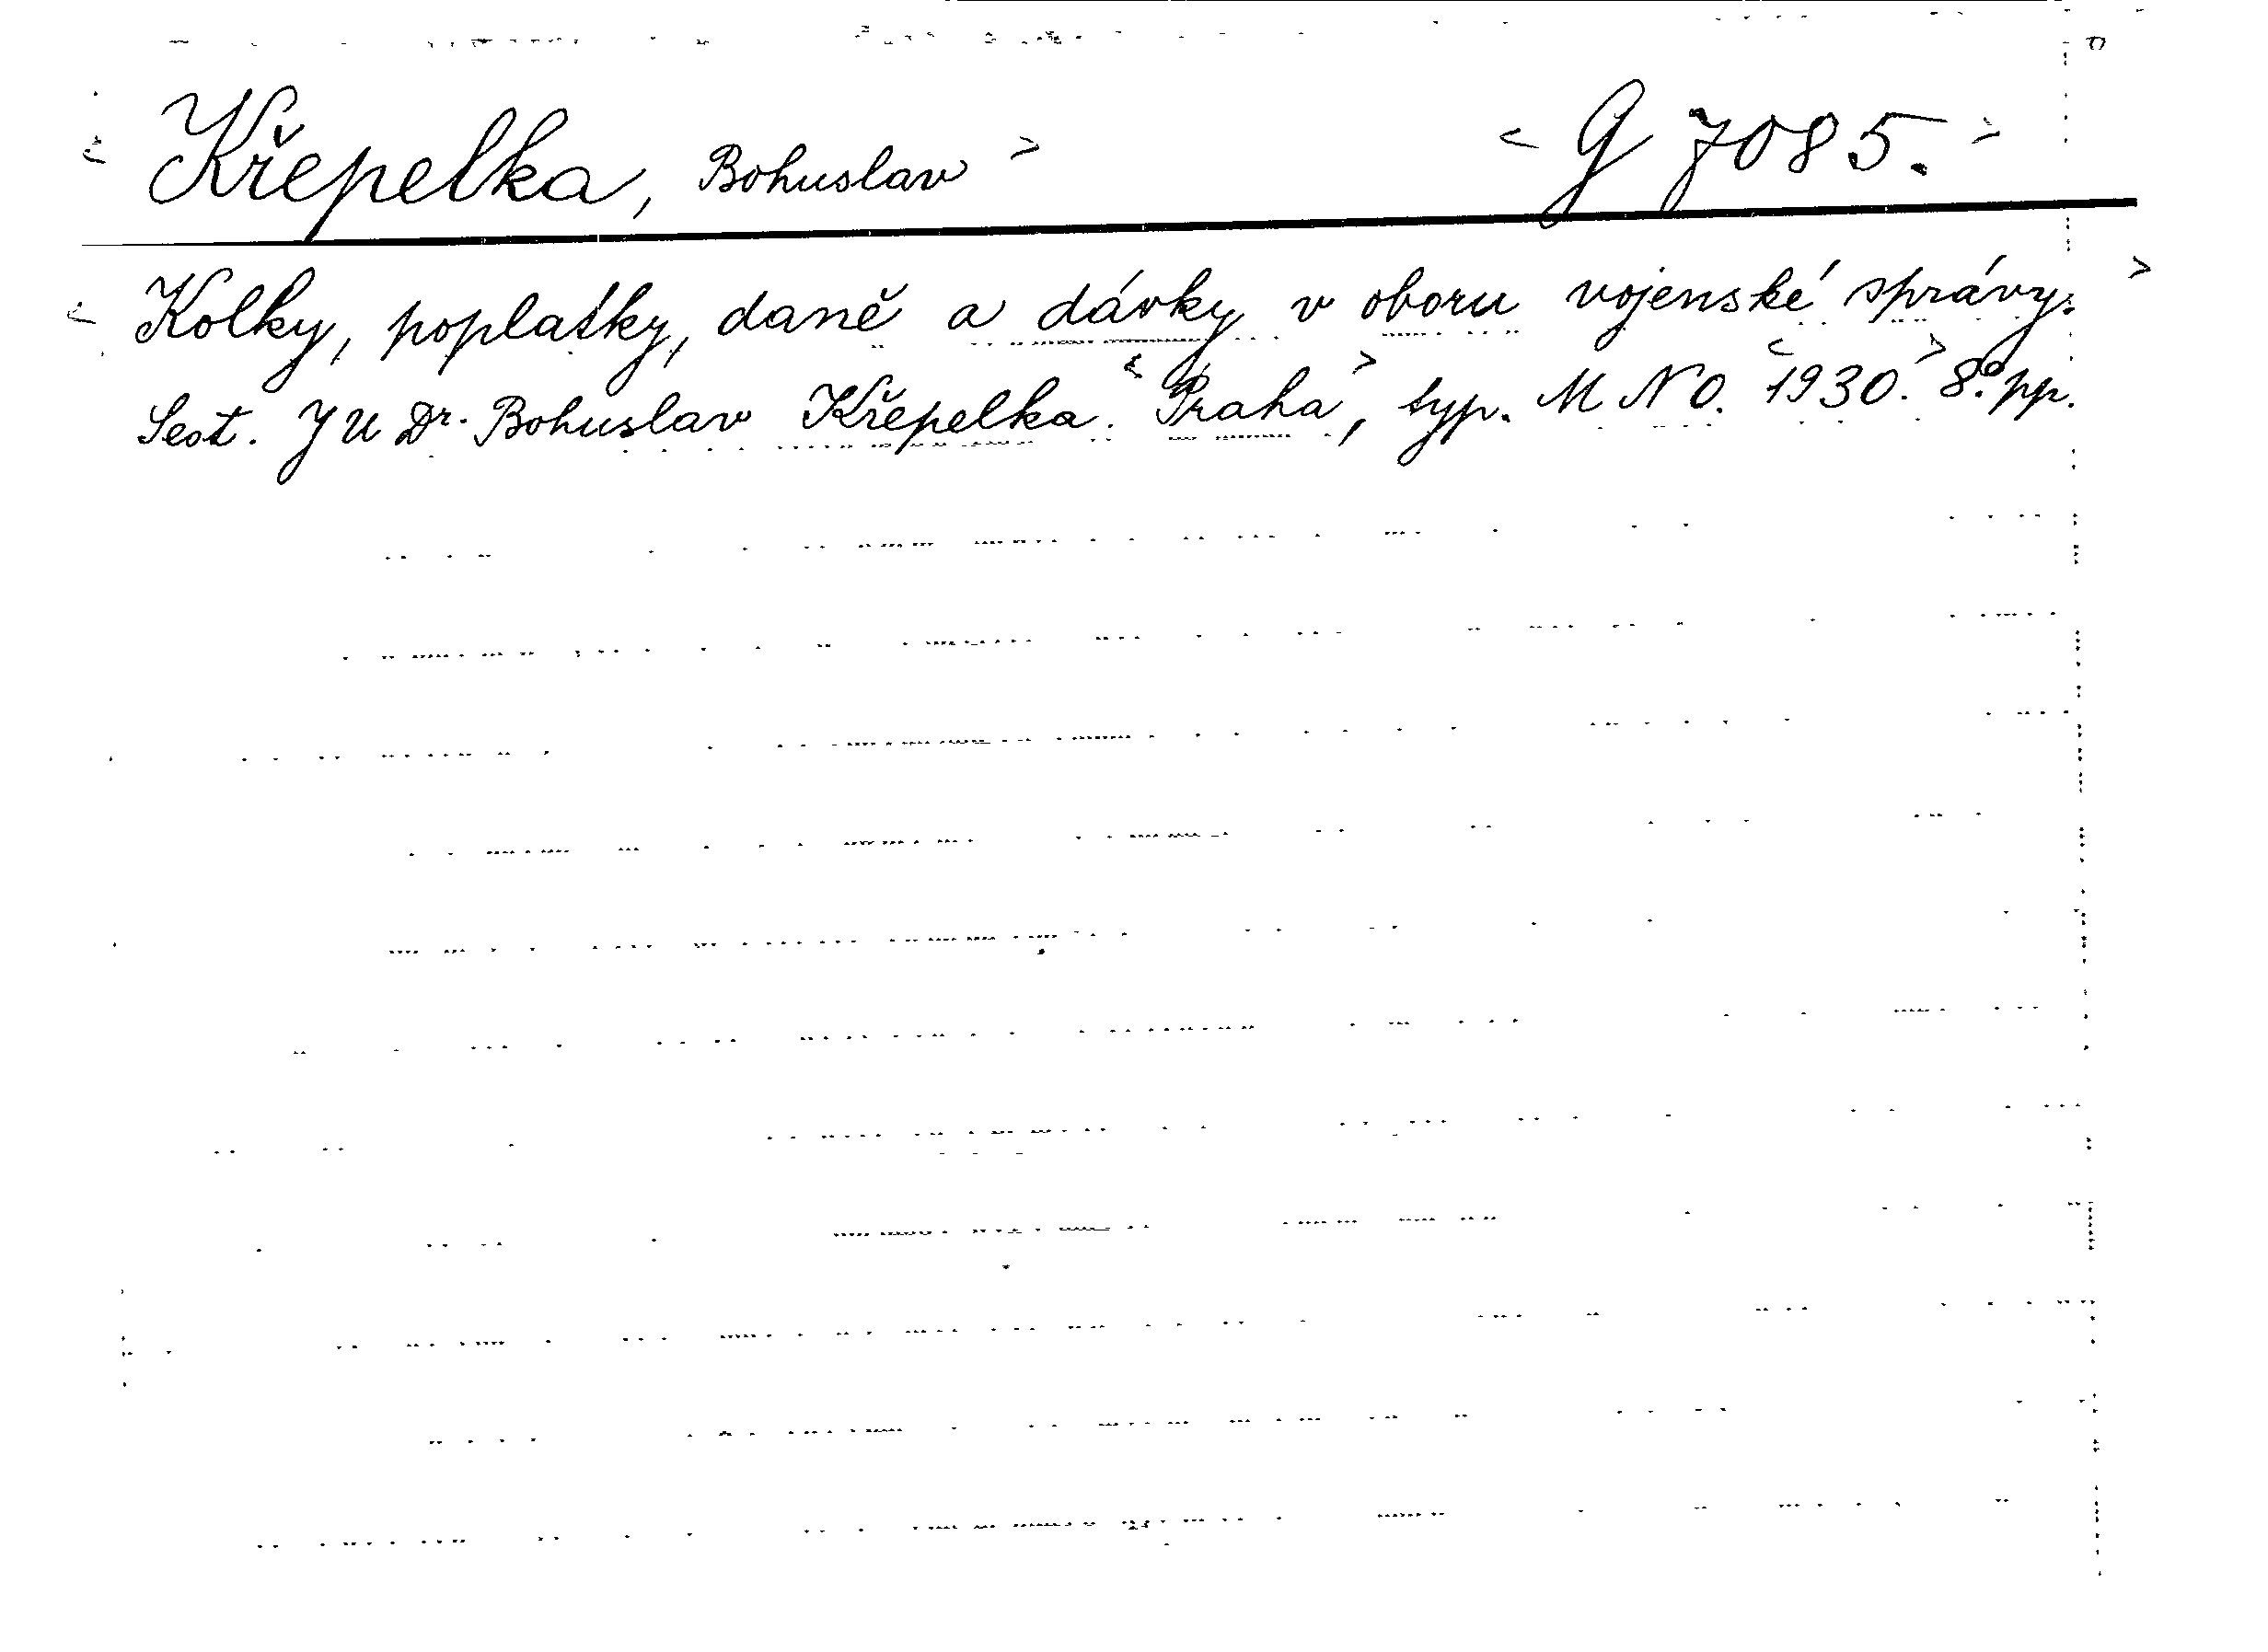 < Křepelka, Bohuslav > < G 7085. >
< Kolky, poplatky, daně a dávky v oboru vojenské správy. >
Sest. JUDr. Bohuslav Křepelka. < Praha >, typ. MNO. < 1930. > 8° pp.